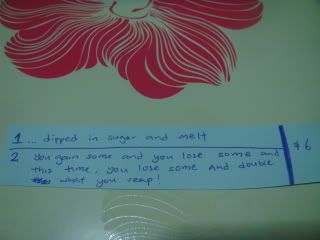 1 ... dipped in sugar and melt
2 You gain some and you lose some and
this time, you lose some And double
what you reap!
$6